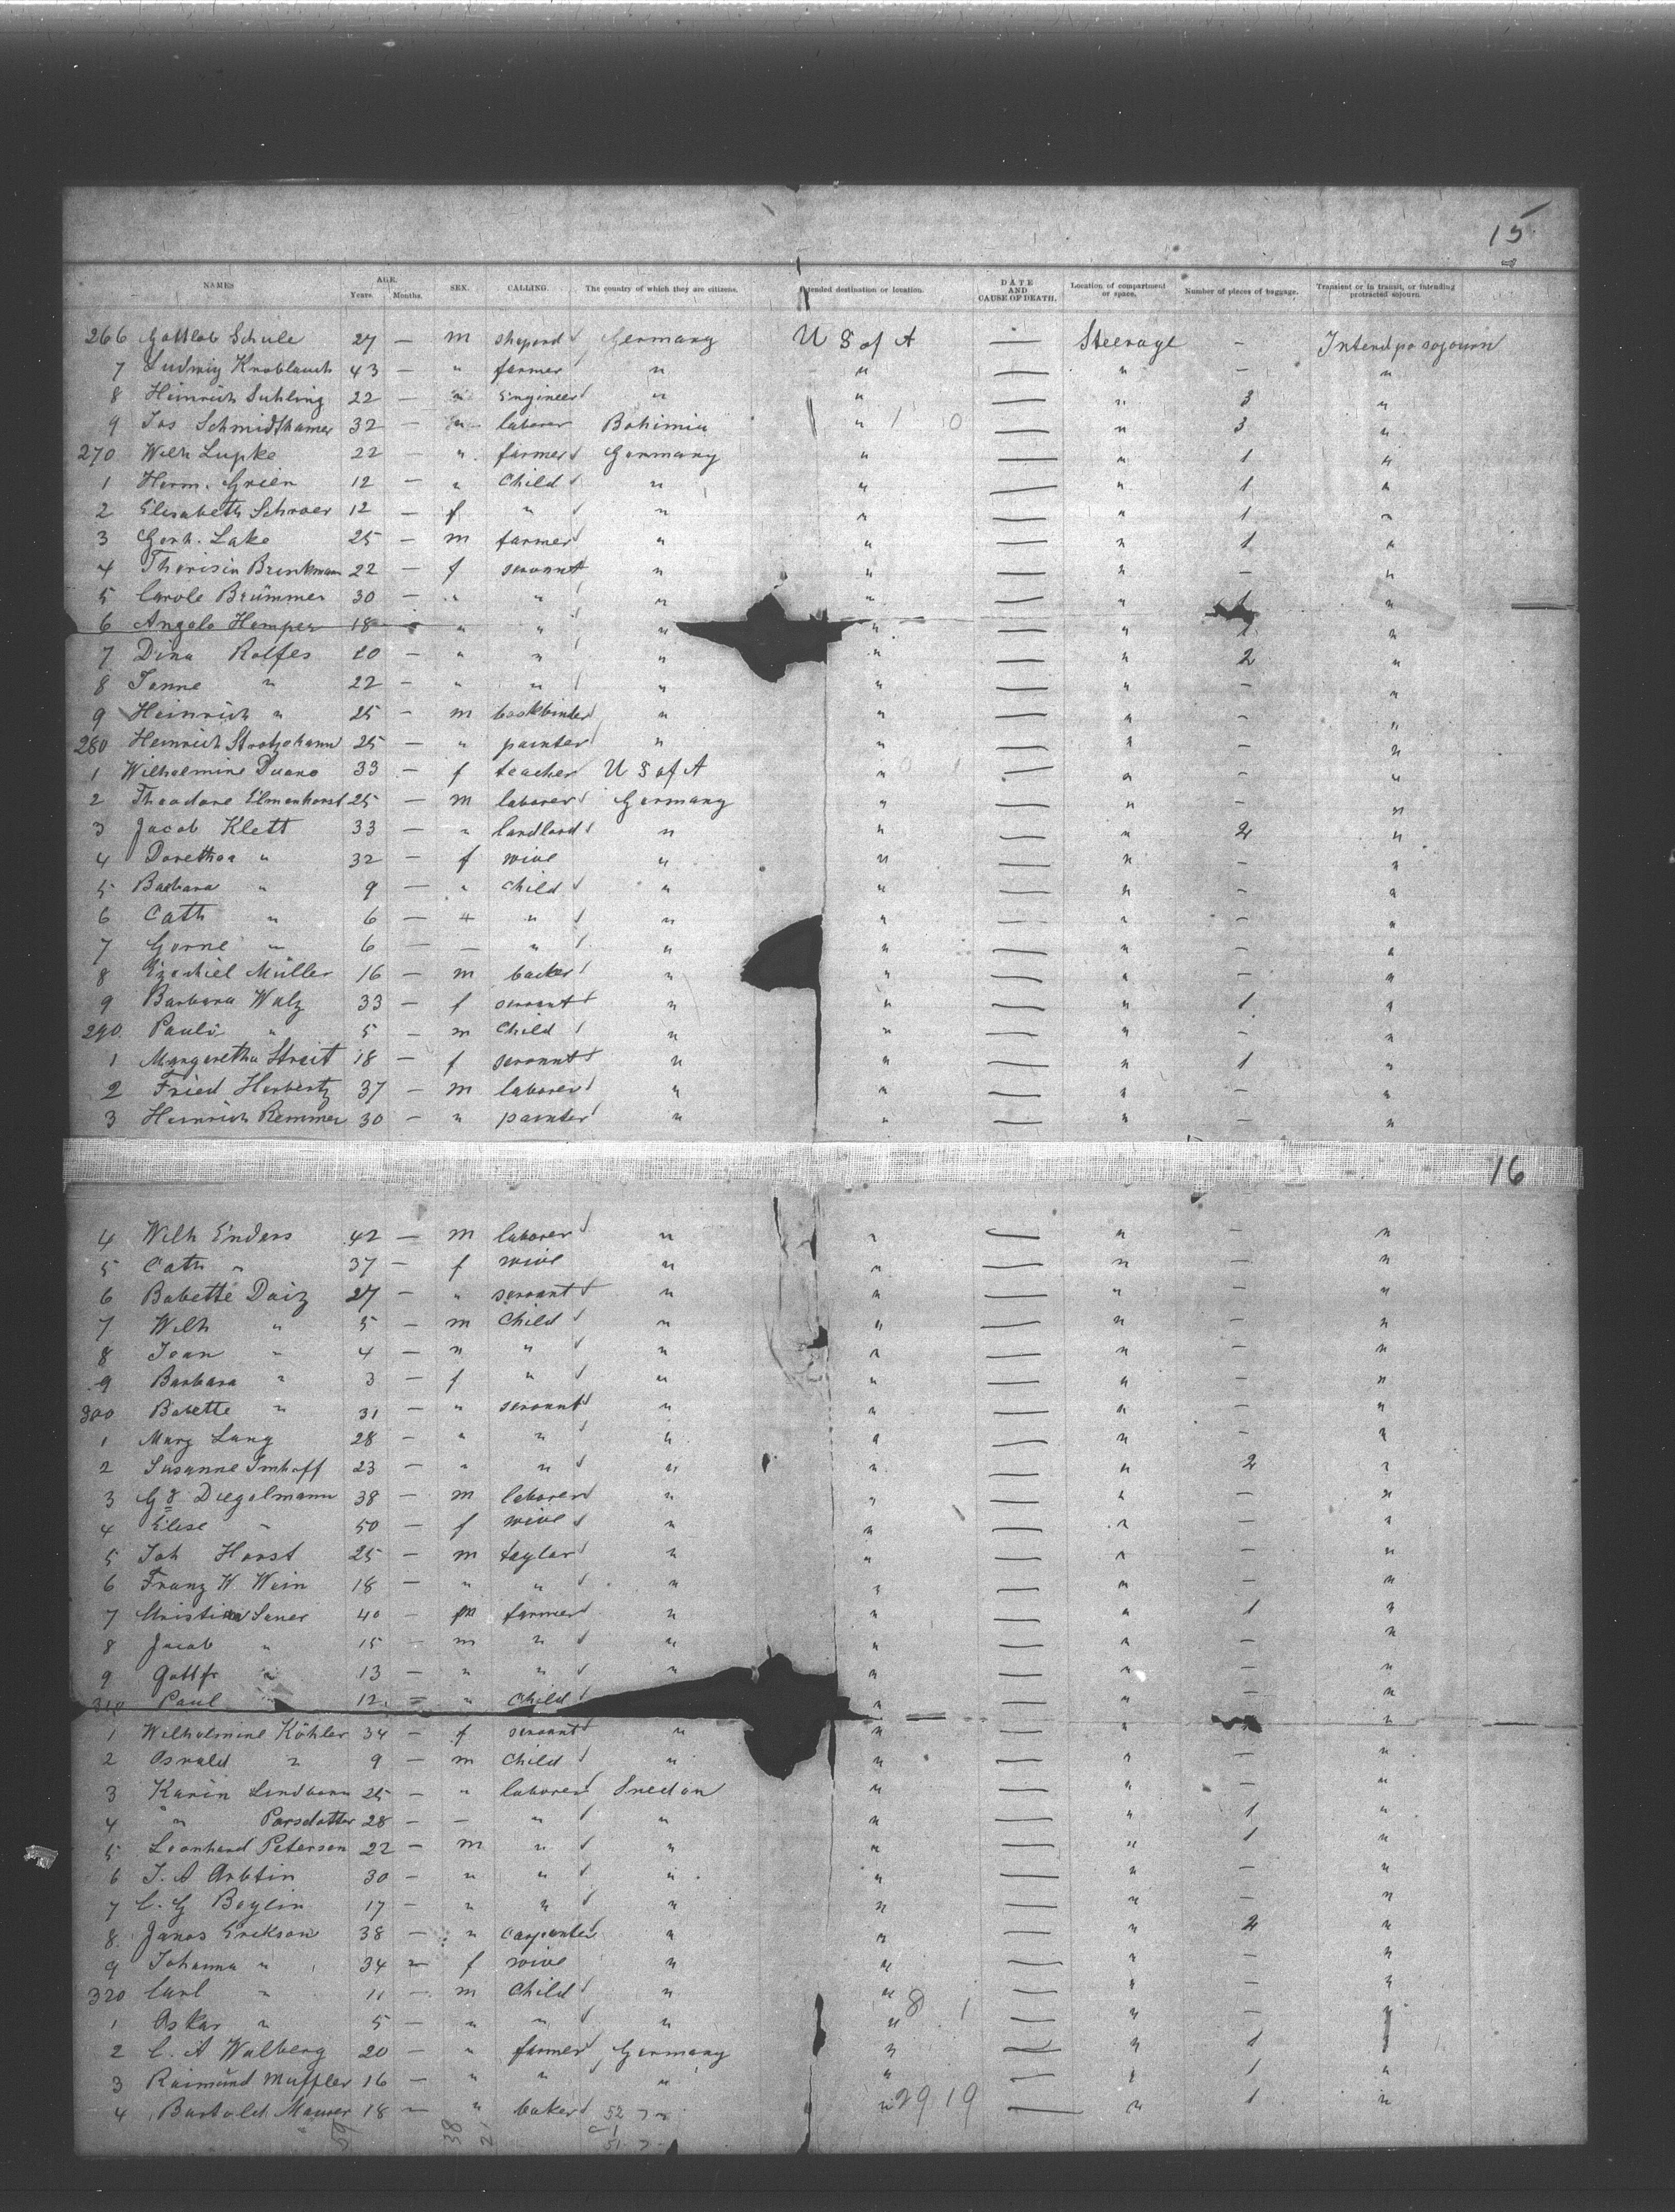 15
NAMES AGE. Years. Months. SEX. CALLING. The country of which they are citizens. Intended destination or location. DATE AND CAUSE OF DEATH. Location of compartment or space. Number of pieces of baggage. Transient or in transit, or intending protracted sojourn.
266 Gottlob Schule 27 — m shepord Germany U S of A — Steerage – Intend po sojourn
7 Ludwig Knoblauch 43 — " farmer " " — " – "
8 Heinrich Suhling 22 — " Engineer " " — " 3 "
9 Jos Schmidthamer 32 — " laborer Bohimia " — " 3 "
270 Wilh Lupke 22 — " farmer Germany " — " 1 "
1 Herm. Grien 12 — " Child " " — " 1 "
2 Elisabeth Schroer 12 — f " " " — " 1 "
3 Gerh. Lake 25 — m farmer " " — " 1 "
4 Therisia Brinkmann 22 — f servant " " — " – "
5 Carole Brümmer 30 — " " " " — " 1 "
6 Angela Hemper 18 — " " " " — " "
7 Dina Rolfes 20 — " " " " — " 2 "
8 Janne " 22 – " " " " — " – "
9 Heinrich " 25 – m bookbinder " " — " – "
280 Heinrich Strotjohann 25 – " painter " " — " – "
1 Wilhelmine Duano 33 – f teacher U S of A " — " – "
2 Theodore Elmenhorst 25 – m laborer Germany " — " – "
3 Jacob Klett 33 — " landlord " " — " 2 "
4 Dorethea " 32 — f wive " " — " – "
5 Barbara " 9 — " Child " " — " – "
6 Cath " 6 — + " " " — " – "
7 " 6 — — " " " — " – "
8 Ezechiel Müller 16 — m backer " " — " – "
9 Barbara Walz 33 – f servant " " — " 1 "
290 Pauli " 5 – m Child " " — " – "
1 Margaretha Streit 18 – f servant " " — " 1 "
2 Fried Herbertz 37 – m laborer " " — " – "
3 Heinrich Remmer 30 – " painter " " — " – "
16
4 Wilh Enders 42 — m laborer " " — " – "
5 Cath " 37 – f wive " " — " – "
6 Babette Daiz 27 – " servant " " — " – "
7 Wilh " 5 – m Child " " — " – "
8 Jean " 4 — " " " " — " – "
9 Barbara " 3 – f " " " — " – "
300 Babette " 31 – " servant " " — " – "
1 Marg Lang 28 – " " " " — " – "
2 Susanne Imhoff 23 – " " " " — " 2 "
3 Diegelmann 38 – m laborer " " — " – "
4 Elise " 50 – f wive " " — " – "
5 Joh Horst 25 – m taylor " " — " – "
6 Franz W. Wein 18 – " " " " — " – "
7 40 – m farmer " " — " 1 "
8 Jacob " 15 – m " " " — " – "
9 Gottfr " 13 – " " " " — " – "
310 Paul " 12 – " Child " — " – "
1 Wilhelmine Köhler 34 – f servant " " — " "
2 Oswald " 9 – m Child " " — " – "
3 Karin Lindborn 25 – " laborer Sweden " — " – "
4 " Parsdotter 28 – – " " " — " 1 "
5 Leonhard Peterson 22 – m " " " — " 1 "
6 30 – " " " " — " – "
7 C. G 17 – " " " " — " – "
8 Janos Erikson 38 – " carpenter " " — " 2 "
9 Johanna " 34 – f wive " " — " – "
320 Carl " 11 – m Child " " — " – "
1 Oskar " 5 – " " " " — " – "
2 C. A Walberg 20 – " farmer Germany " — " 1 "
3 Raimund Muffler 16 – " " " " — " 1 "
4 Bartold Mauser 18 – " baker " — " 1 "